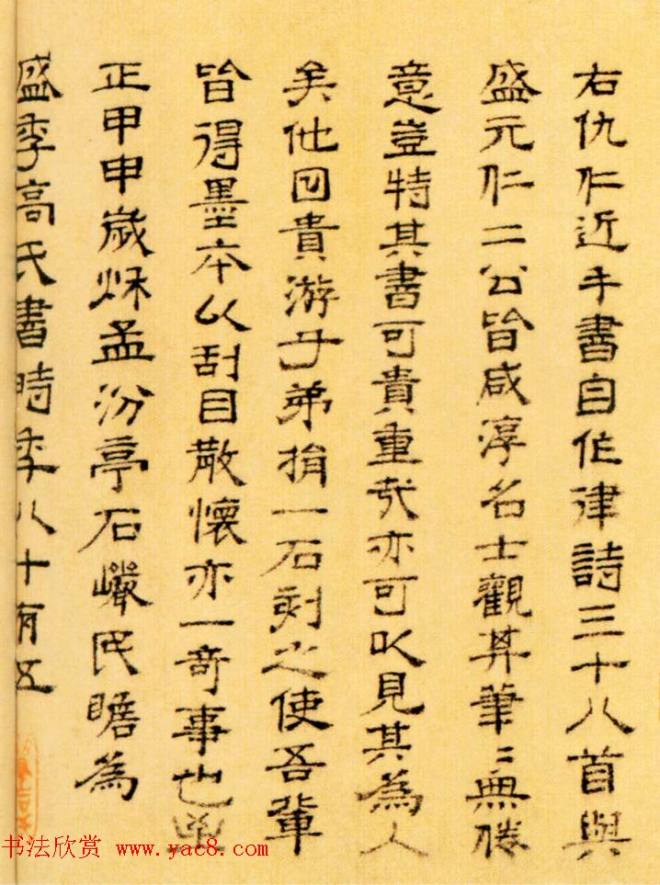 右仇仁近手書自作律詩三十八首與
盛元仁二公皆咸淳名士觀其筆〻無倦
意豈特其書可貴重哉亦可以見其為人
矣他日貴游子弟捐一石刻之使吾輩
皆得墨本以刮目散懷亦一奇事也至
正甲申歲秌孟汾亭石巖民瞻為
盛季高氏書時年八十有五
书法欣赏 www.yac8.com